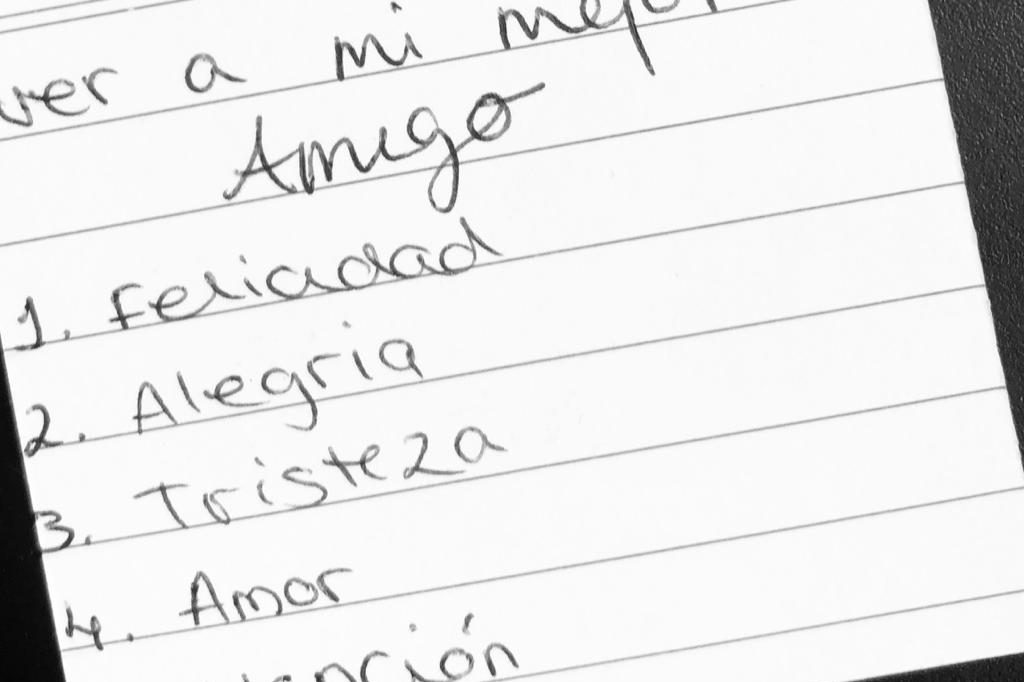 ver a mi mejor
Amigo
1. Feliciadad
2. Alegria
3. Tristeza
4. Amor